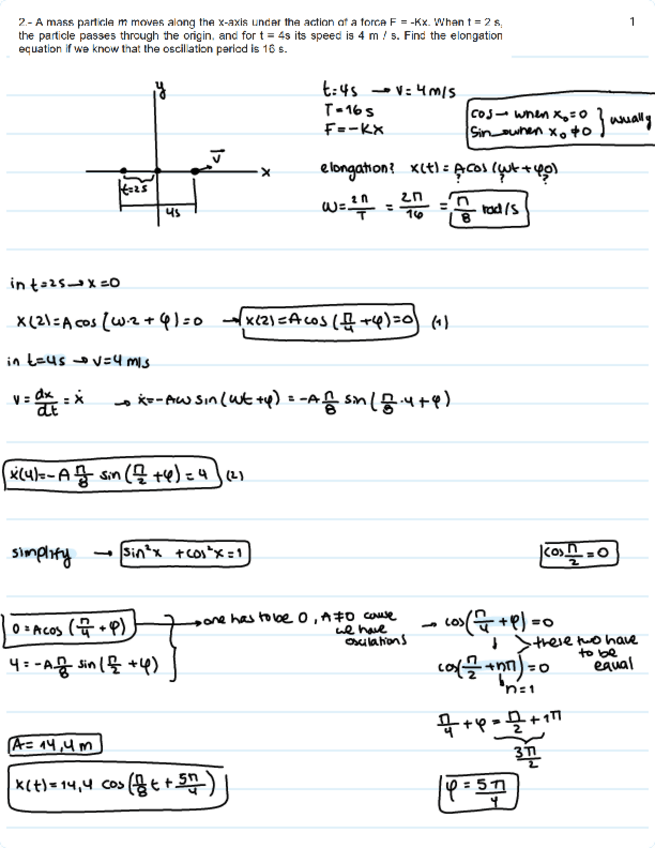 2.- A mass particle m moves along the x-axis under the action of a force F = -Kx. When t = 2 s, 1
the particle passes through the origin, and for t = 4s its speed is 4 m / s. Find the elongation
equation if we know that the oscillation period is 16 s.
y
t=4s → v=4m/s
T=16s
F=-Kx
cos → when x₀=0
sin → when x₀≠0 } usually
v⃗
x
t=2s
4s
elongation? x(t) = A cos (ωt+φ₀)
? ? ?
ω = 2π/T = 2π/16 = π/8 rad/s
in t=2s → x=0
x(2)=A cos(ω·2+φ)=0 → x(2)=A cos(π/4+φ)=0 (1)
in t=4s → v=4 m/s
v = dx/dt = ẋ → ẋ=-Aω sin(ωt+φ) = -A π/8 sin(π/8·4+φ)
ẋ(4)=-A π/8 sin(π/2+φ)=4 (2)
simplify → sin²x + cos²x=1 cos π/2 = 0
0=A cos(π/4+φ) } → one has to be 0, A≠0 cause
we have
oscilations
4=-A π/8 sin(π/2+φ)
→ cos(π/4+φ)=0
↓ > these two have
to be
equal
cos(π/2+nπ)=0
n=1
π/4+φ=π/2+1π
3π/2
A=14,4m
x(t)=14,4 cos(π/8 t+5π/4)
φ=5π/4